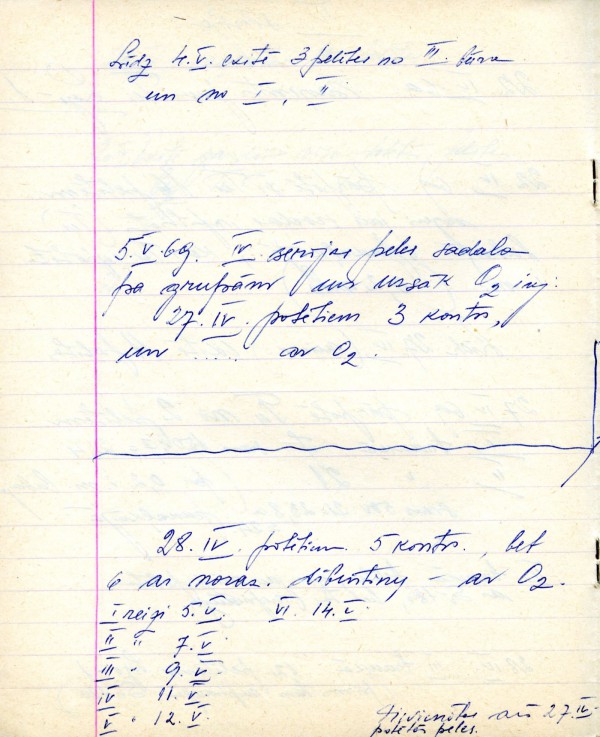 Līdz 4.V. exitē 3 pelītes no III. būra
un no I, II
5.V.69. IV. sērijas peles sadala
pa grupām un uzsāk O2 inj.
27.IV. potētiem 3 kontr.,
un ..... ar O2.
28.IV. potētiem 5 kontr., bet
6 ar noraz. – ar O2.
I reizi 5.V. VI. 14.V.
II " 7.V.
III " 9.V.
IV 11.V.
V " 12.V.
arī 27.IV.
potētās peles.